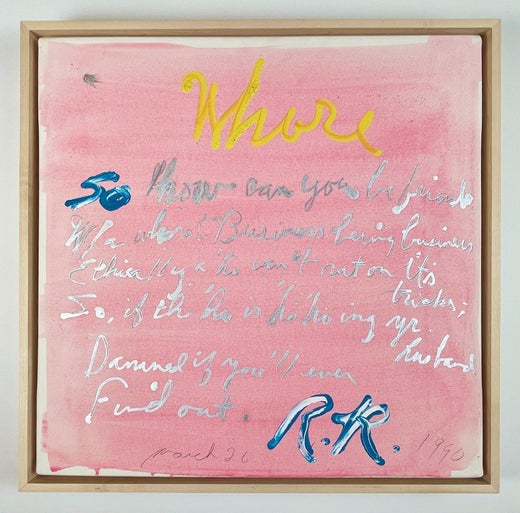 Whore
So how can you be friends
W/ a whore? Business being business
Ethically a 'ho can't rat on its
tricks;
So, if the 'ho is 'ho'ing yr.
husband
Damned if you'll ever
Find out.
R.R.
march 26 1990